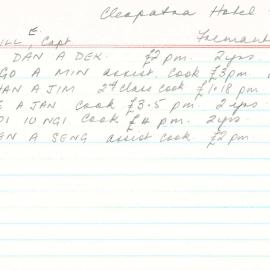 Cleopatra Hotel
ILL, E. Capt Fremant
DAN A DEK. £2 pm. 2yrs
GO A MIN assist. cook £3pm
HAN A JIM 2nd class cook £1.18 pm.
E A JAN cook £3.5 pm. 2 yrs
DI IU NGI cook £4 pm. 2yrs.
EN A SENG assist cook £2 pm